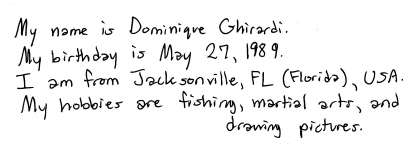 My name is Dominique Ghirardi.
My birthday is May 27, 1989.
I am from Jacksonville, FL (Florida), USA.
My hobbies are fishing, martial arts, and
drawing pictures.